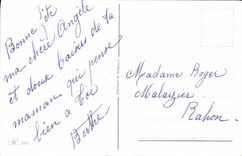 Bonne fête
ma chère Angèle
et doux baisers de ta
maman qui pense
bien à toi
Berthe
Madame Roger
Rahon